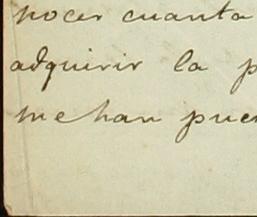 nocer cuanta
adquirir la p
me han pues